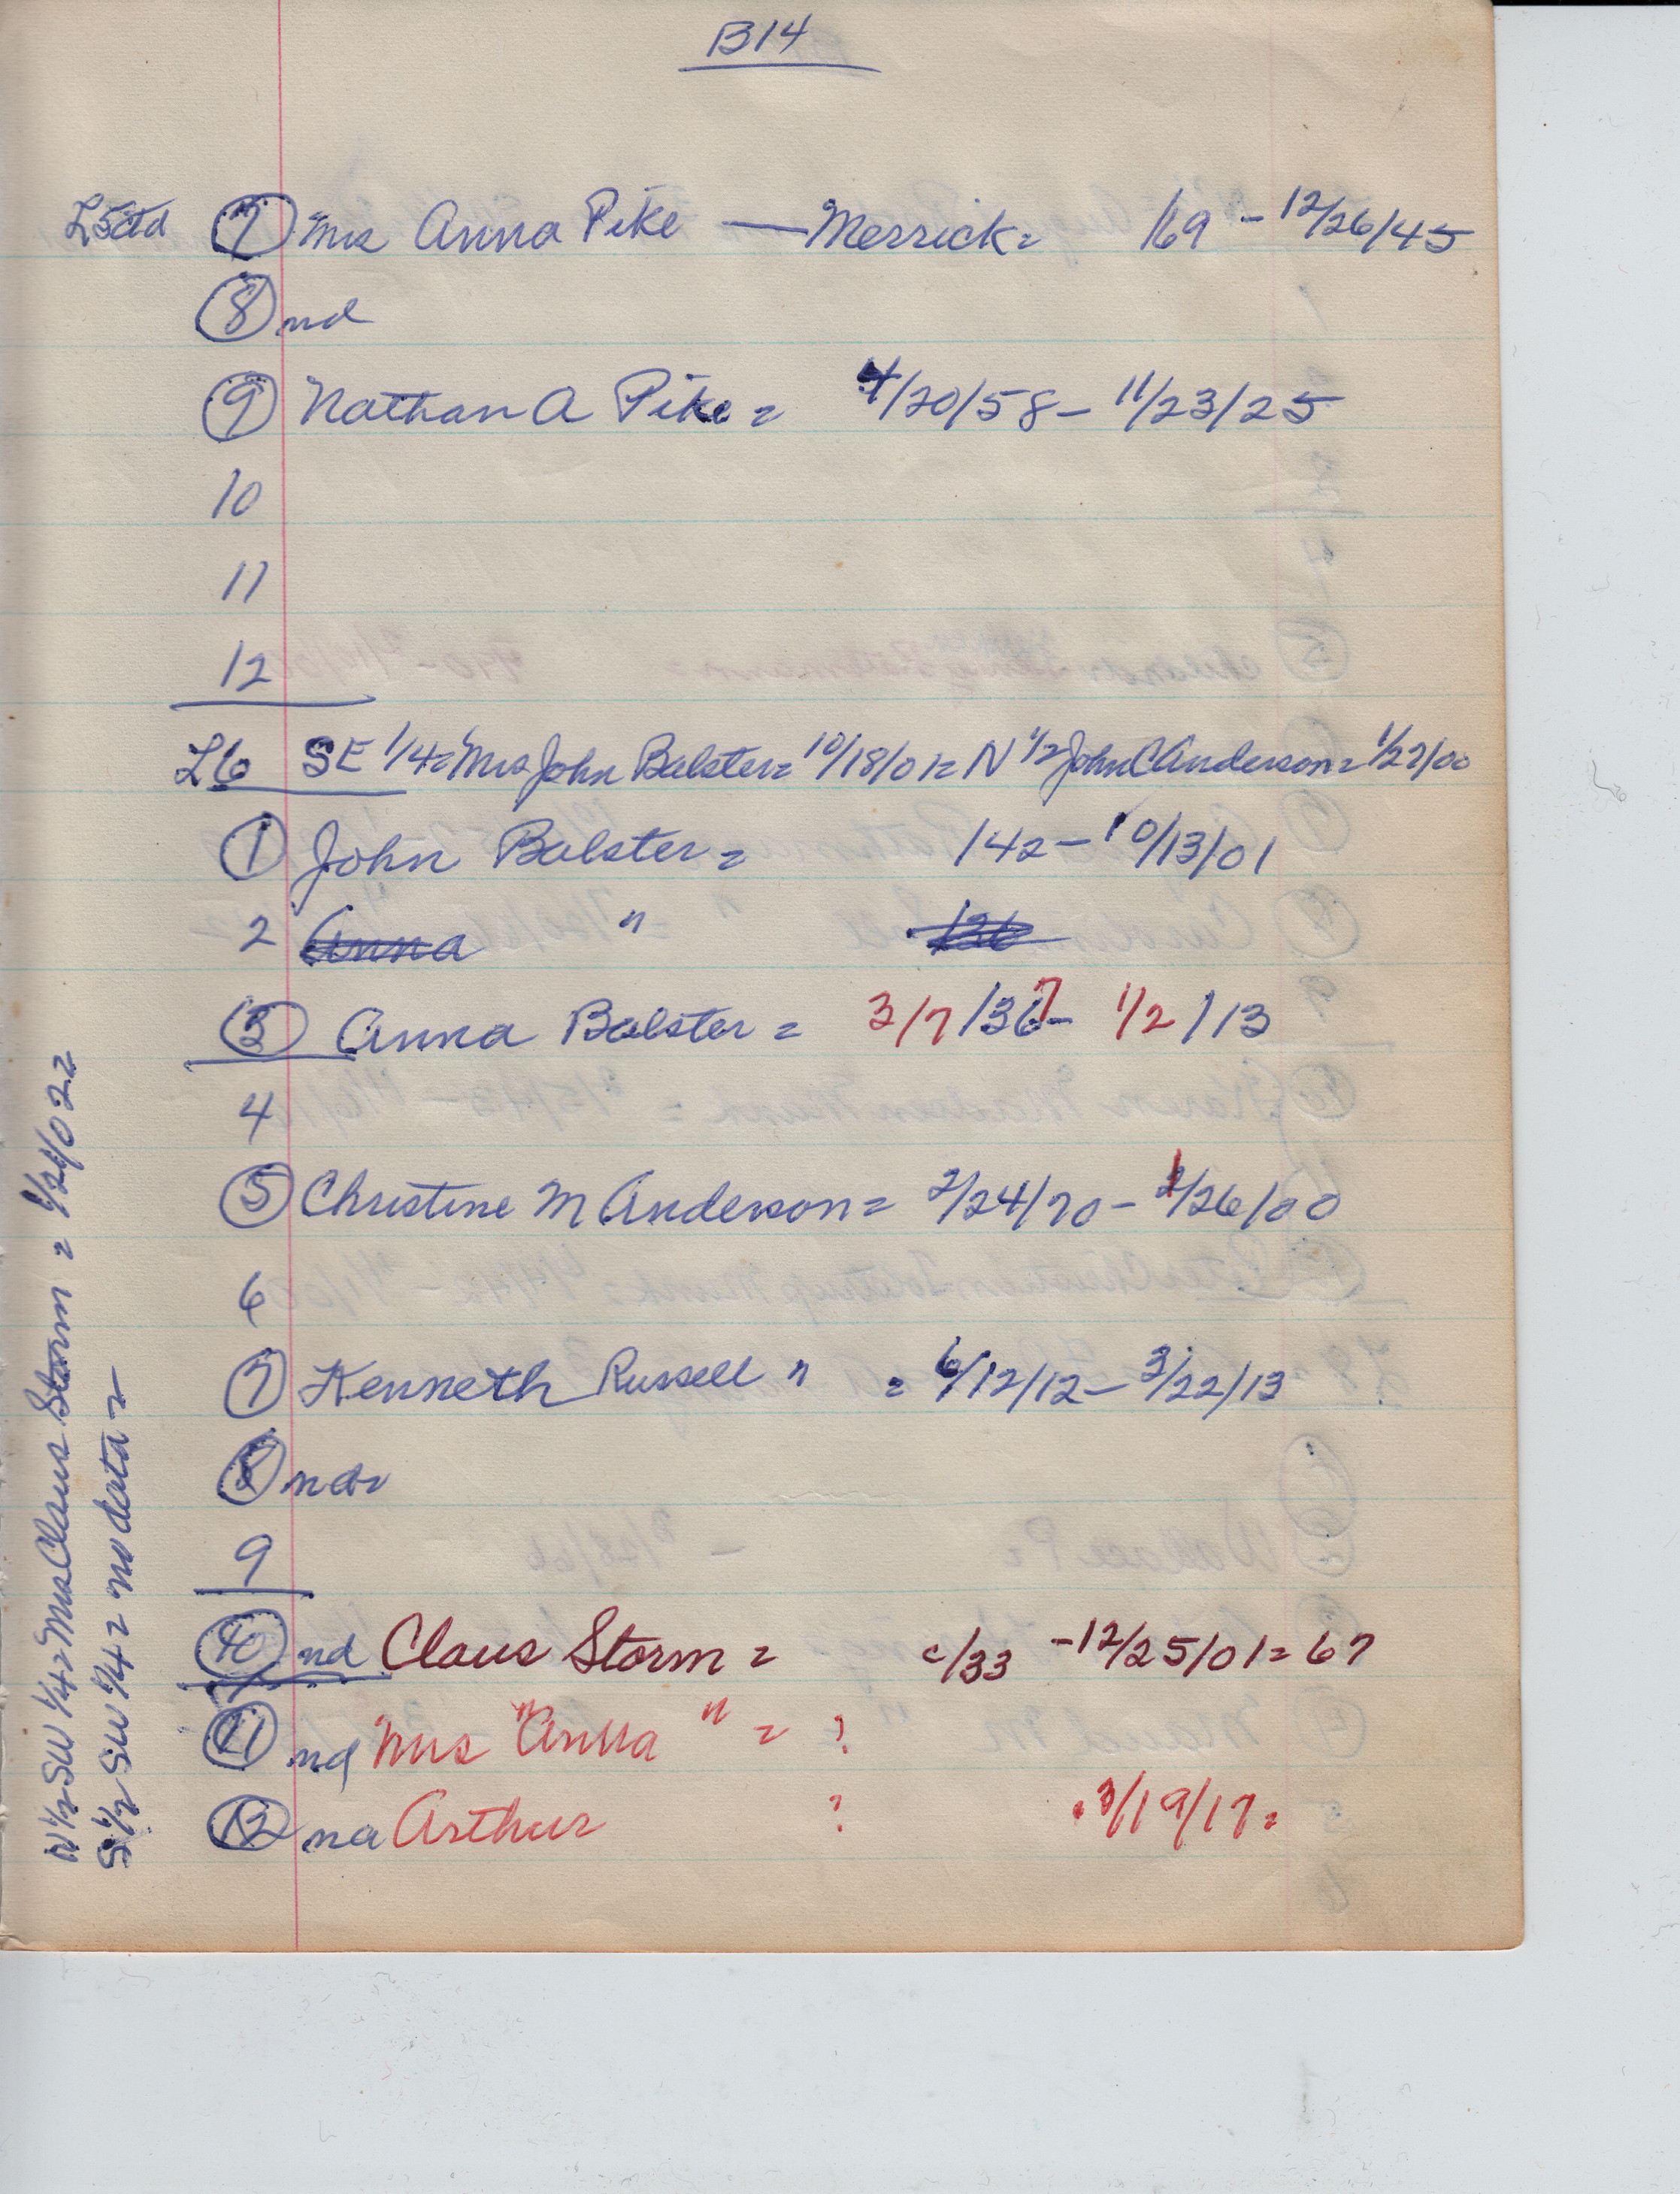 B14
L5ctd 7 Mrs Anna Pike — Merrick = /69 - 12/26/45
8 nd
9 Nathan A Pike = 4/20/58 - 11/23/25
10
11
12
L6 SE 1/4 = Mrs John Balster = 10/18/01 = N 1/2 John C Anderson = 1/22/00
1 John Balster = /42 - 10/13/01
2 Anna " /36
3 Anna Balster = 3/7/37 - 1/2/13
4
5 Christine M Anderson = 2/24/70 - 1/26/00
6
7 Kenneth Russell " = 6/12/12 - 3/22/13
8 nd =
9
10 nd Claus Storm = c/33 - 12/25/01 = 67
11 nd Mrs "Anna " = ?
12 nd Arthur ? 3/19/17 =
N 1/2 SW 1/4 = Mrs Claus Storm =
S 1/2 SW 1/4 = no data =